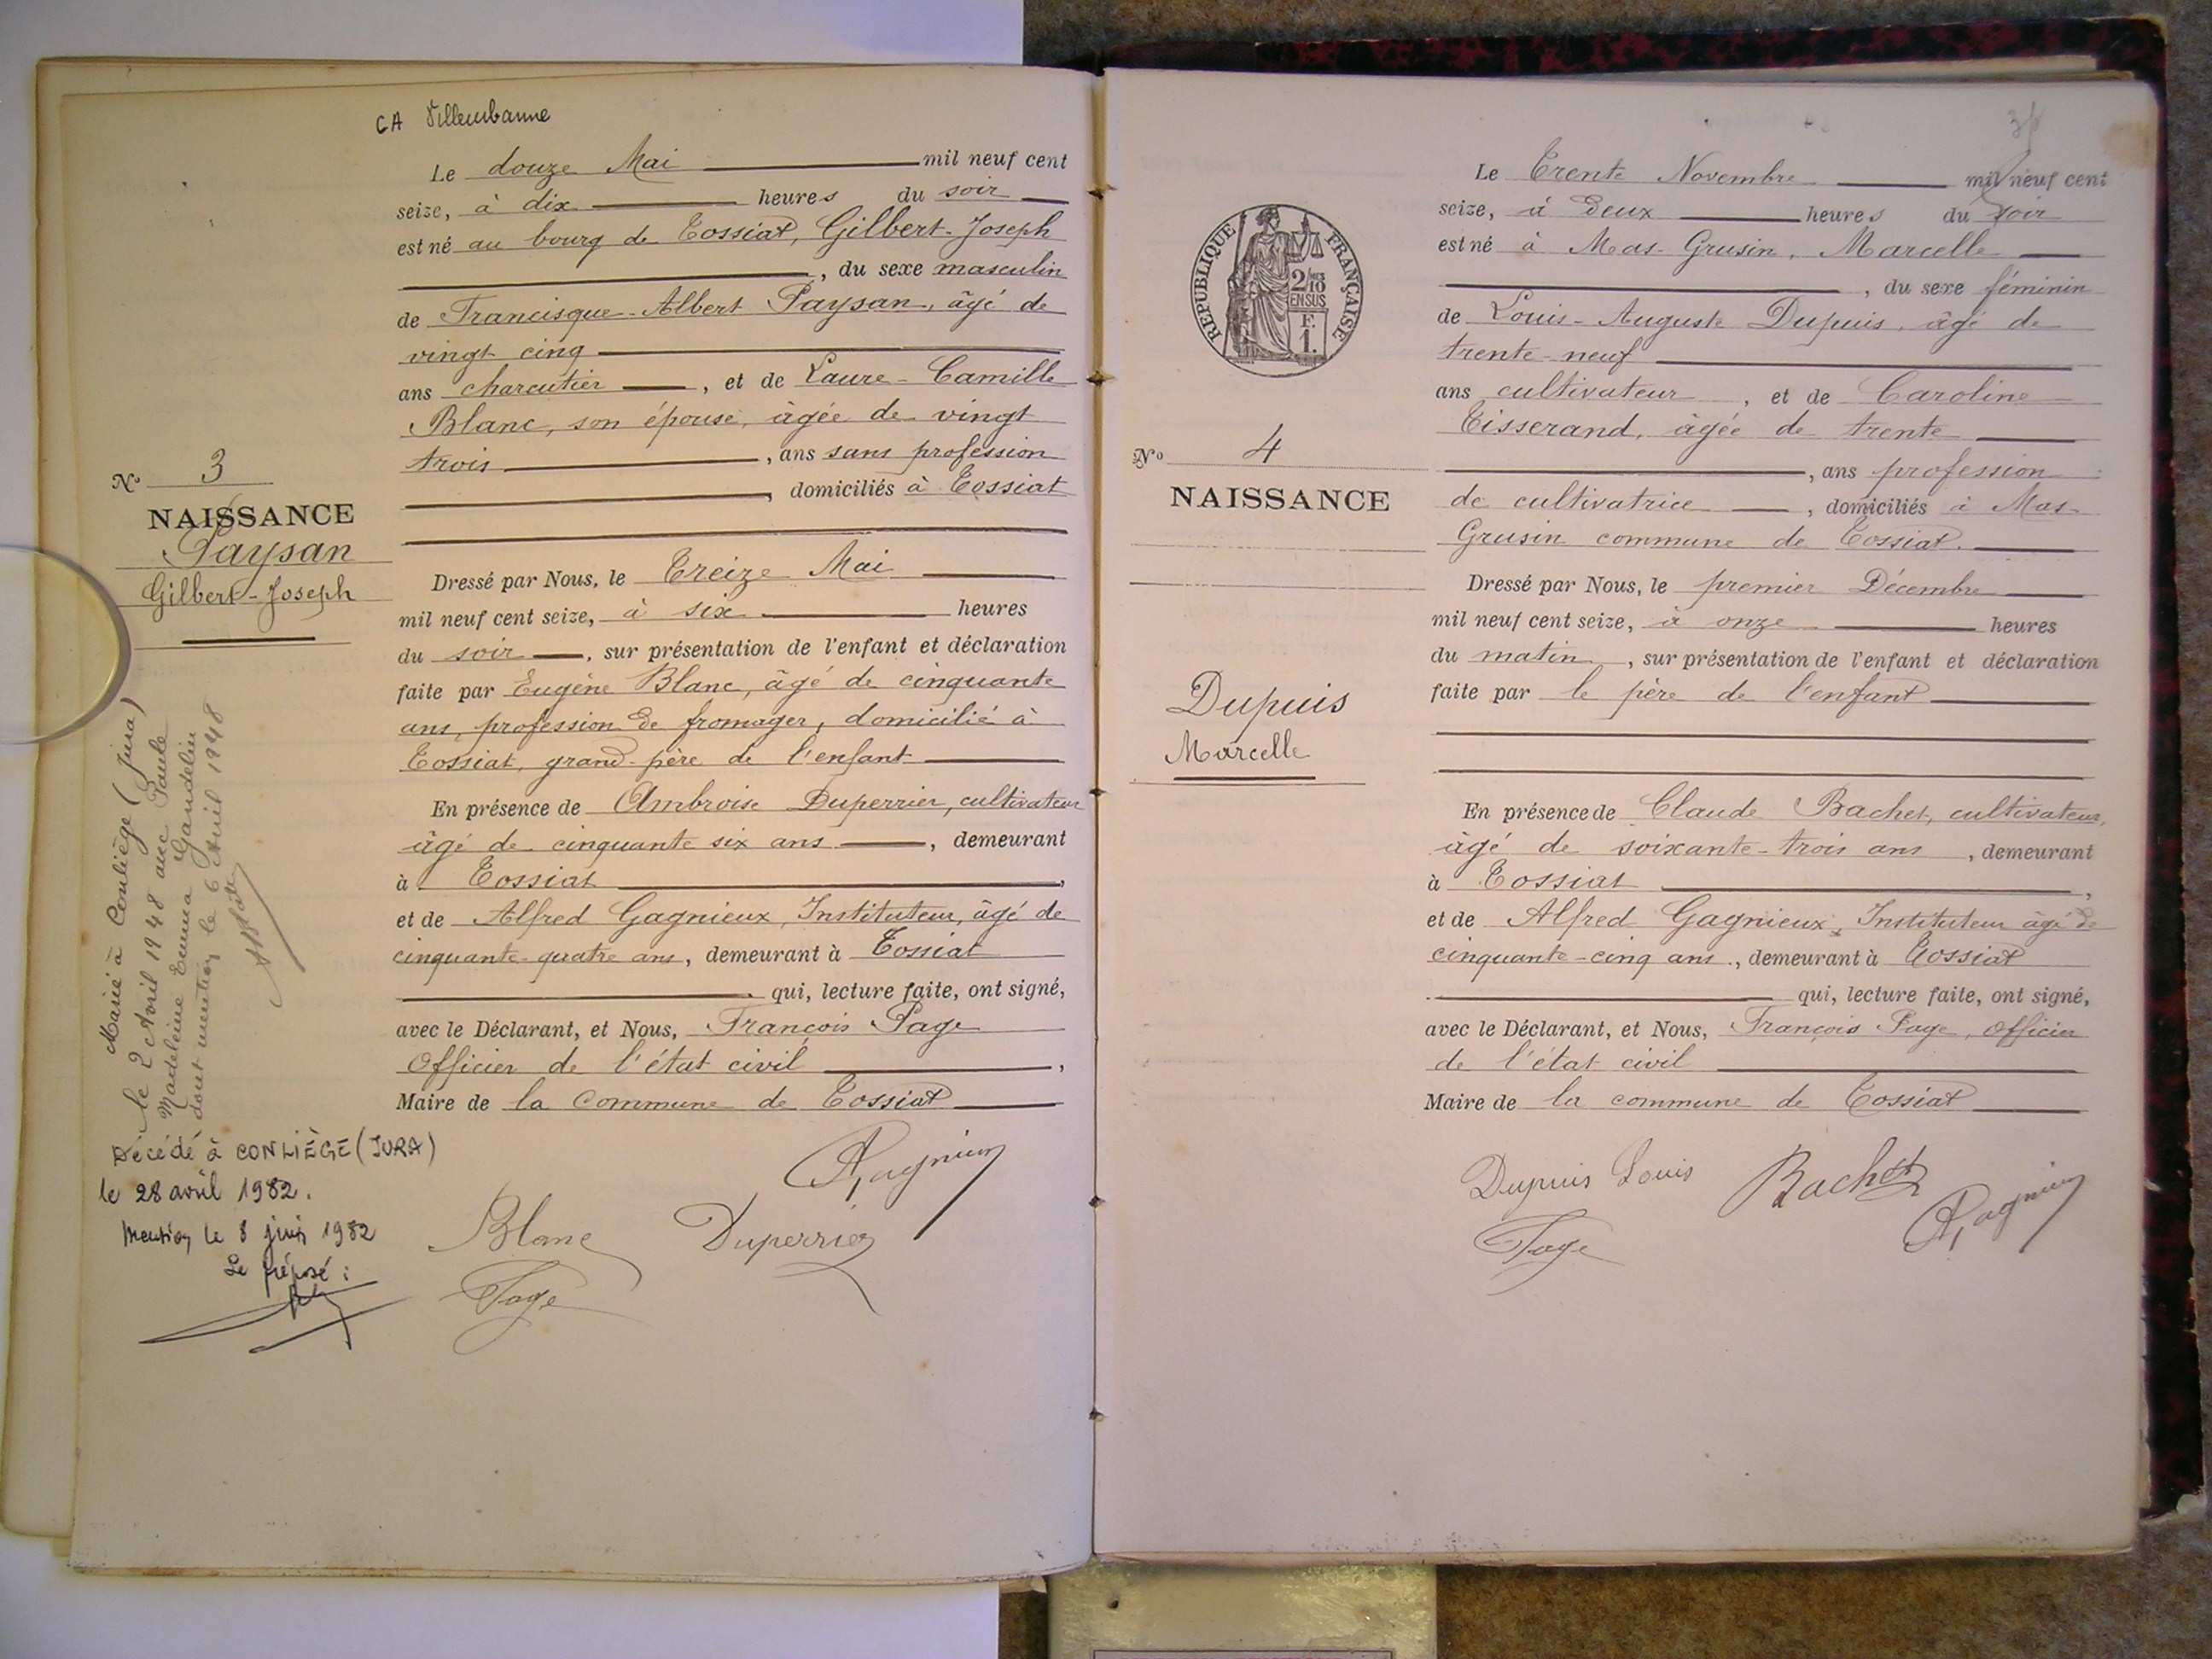 CA Villeurbanne
Le douze Mai mil neuf cent
seize, à dix heures du soir
est né au bourg de Tossiat, Gilbert-Joseph
, du sexe masculin
de Francisque-Albert Paysan, âgé de
vingt cinq
ans charcutier, et de Laure-Camille
Blanc, son épouse, âgée de vingt
trois, ans sans profession
, domiciliés à Tossiat
No 3
NAISSANCE
Paysan
Gilbert-Joseph
Dressé par Nous, le Treize Mai
mil neuf cent seize, à six heures
du soir, sur présentation de l'enfant et déclaration
faite par Eugène Blanc, âgé de cinquante
ans, profession de fromager, domicilié à
Tossiat, grand-père de l'enfant
En présence de Ambroise Duperrier, cultivateur
âgé de cinquante six ans, demeurant
à Tossiat,
et de Alfred Gagnieux, Instituteur, âgé de
cinquante-quatre ans, demeurant à Tossiat
qui, lecture faite, ont signé,
avec le Déclarant, et Nous, François Page
Officier de l'état civil,
Maire de la Commune de Tossiat
Marié à Conliège (Jura)
le 2 Avril 1948 avec Paule
Madeleine Emma Gaudelin
dont mention le 6 Avril 1948
Décédé à CONLIÈGE (JURA)
le 28 avril 1982.
Mention le 8 juin 1982
Le préposé :
A Gagnieux
Blanc Duperrier
Page
Le Trente Novembre mil neuf cent
seize, à Deux heures du soir
est né à Mas-Grusin, Marcelle
, du sexe féminin
de Louis-Auguste Dupuis, âgé de
trente-neuf
ans cultivateur, et de Caroline
Tisserand, âgée de trente
, ans profession
de cultivatrice, domiciliés à Mas-
Grusin commune de Tossiat.
REPUBLIQUE FRANÇAISE
2/10
EN SUS
F.
1.
No 4
NAISSANCE
Dupuis
Marcelle
Dressé par Nous, le premier Décembre
mil neuf cent seize, à onze heures
du matin, sur présentation de l'enfant et déclaration
faite par le père de l'enfant
En présence de Claude Bachet, cultivateur,
âgé de soixante-trois ans, demeurant
à Tossiat,
et de Alfred Gagnieux, Instituteur âgé de
cinquante-cinq ans., demeurant à Tossiat
qui, lecture faite, ont signé,
avec le Déclarant, et Nous, François Page, Officier
de l'état civil
Maire de la commune de Tossiat
Dupuis Louis Bachet A Gagnieux
Page